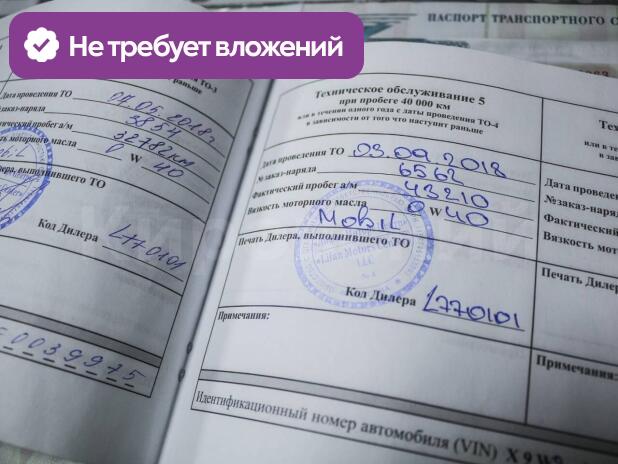 Не требует вложений
ПАСПОРТ ТРАНСПОРТНОГО С
ТО-3
раньше
Дата проведения ТО 07.05.2018
№заказ-наряда 3854
Фактический пробег а/м 32782км
моторного масла 0 W 40
Дилера, выполнившего ТО
Код Дилера L770101
0039975
Техническое обслуживание 5
при пробеге 40 000 км
или в течении одного года с даты проведения ТО-4
в зависимости от того что наступит раньше
Дата проведения ТО 03.09.2018
№заказ-наряда 6562
Фактический пробег а/м 43210
Вязкость моторного масла 0 W 40
Mobil
Печать Дилера, выполнившего ТО
Lifan Motors
LLC
Код Дилера L770101
Примечания:
Идентификационный номер автомобиля (VIN) X 9 W
Те
или в те
в зав
Дата проведе
№заказ-наря
Фактический
Вязкость мот
Печать Диле
Примечания: